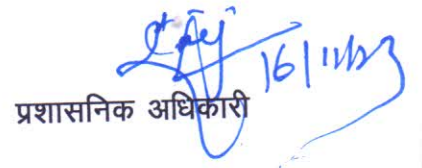 16/11/23
प्रशासनिक अधिकारी